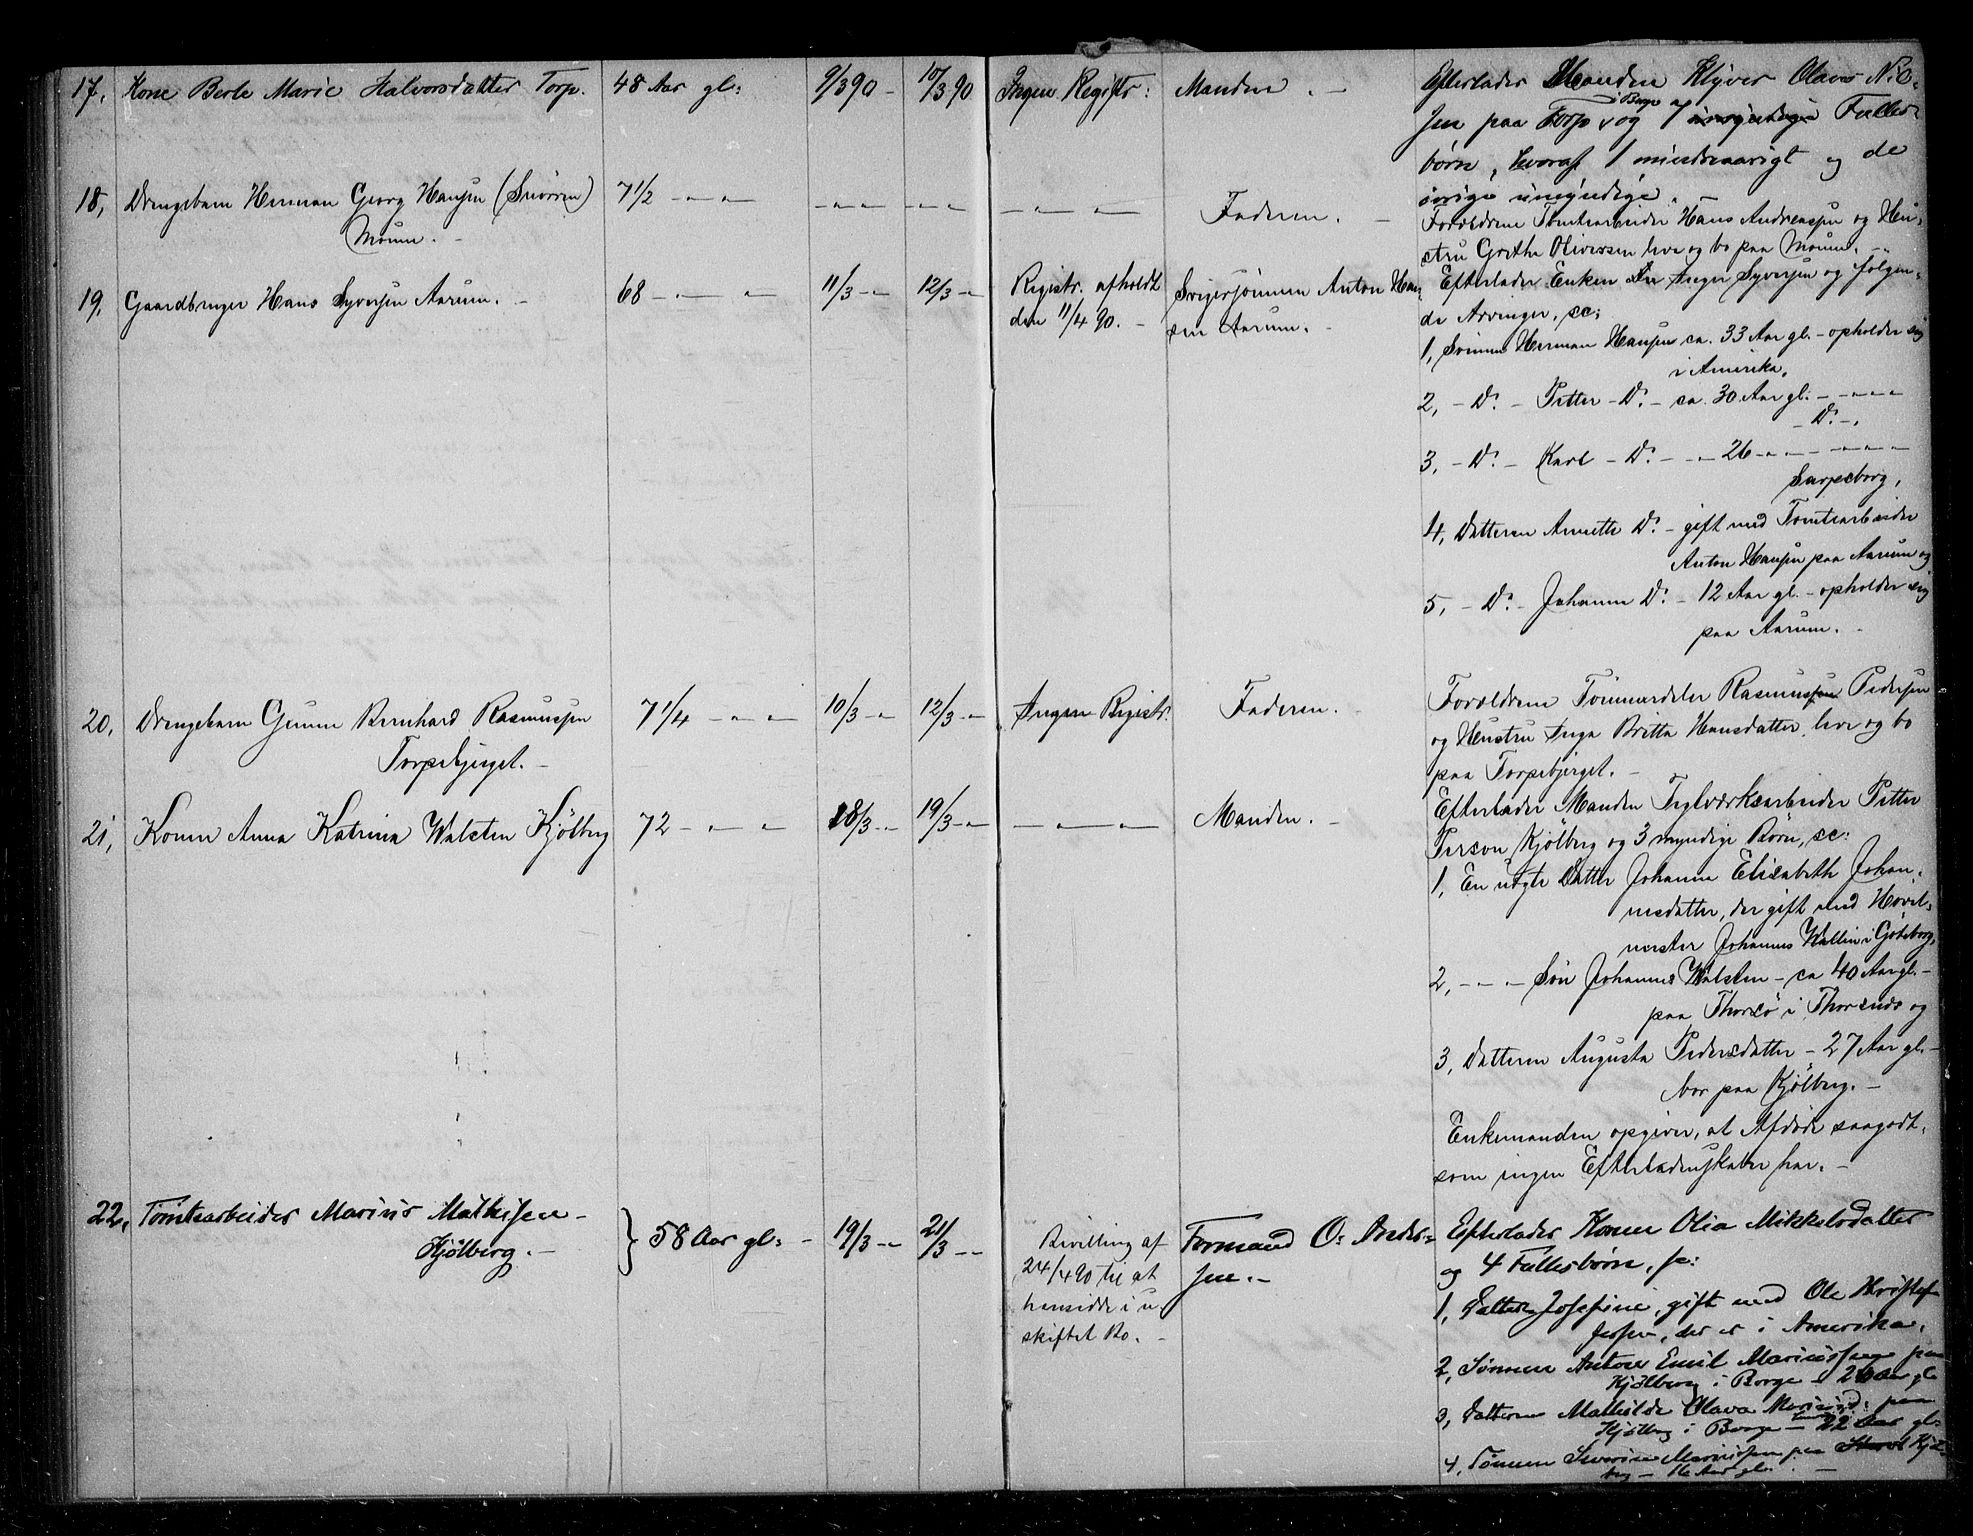 17, Kone Berte Marie Halvorsdatter Torp. 48 Aar gl: 9/3 90 - 10/3 90 Ingen Registr: Manden. -
Efterlader Manden Olaves Nil-
sen paa Torp i Borge og 7 Fælles-
børn, hvoraf 1 mindreaarigt og de
øvrige umyndige.
18, Drengebarn Herman Georg Hansen
Moum. - 7 1/2 - " - " - " - " - " - " - Faderen. -
Forældrene Tomtearbeider Hans Andreassen og Hu-
stru Grethe Oliversen leve og bo paa Moum. -
19, Gaardbruger Hans Syversen Aarum. - 68 - " - " 11/3 - " 12/3 - "
Registr. afholdt
den 11/4 90. -
Svigersønnen Anton Han-
sen Aarum. -
Efterlader Enken Inger Syversen og følgen-
de Arvinger, sc:
1, Sønnen Herman Hansen ca. 33 Aar gl. - opholder sig
i Amerika,
2, - Do - Petter - Do - ca. 30 Aar gl. - " - " - "
- Do -,
3, - Do - Karl - Do - " - 26 - " - " - " - "
Sarpsborg,
4, Datteren Annette Do - gift med Tomtearbeider
Anton Hansen paa Aarum og
5, - Do - Johanne Do - 12 Aar gl. - opholder sig
paa Aarum. -
20, Drengebarn Gunne Bernhard Rasmussen
Torpebjerget. - 7 1/4 - " - " 10/3 - " 12/3 - " Ingen Registr. Faderen. -
Forældrene Tømmerdeler Rasmus Pedersen
og Hustru Inga Britta Hansdatter, leve og bo
paa Torpebjerget. -
21, Konen Anna Katrina Walsten Kjølberg 72 - " - " 18/3 - " 19/3 - " - " - " Manden. -
Efterlader Manden Teglværksarbeider Petter
Person Kjølberg og 3 myndige Børn, sc:
1, En uægte Datter Johanne Elisabeth Johan-
nesdatter, der gift med
mester Johannes Wallin i Göteborg,
2, - " - " Søn Johannes Walsten - ca 40 Aar gl. -
paa Thorsø i Thorsnes og
3, Datteren Augusta Pedersdatter - 27 Aar gl. -
bor paa Kjølberg. -
Enkemanden opgiver, at Afdøde saagodt-
som ingen Efterladenskaber har. -
22, Tomtearbeider Marius Mathisen -
Kjølberg. - } 58 Aar gl: - 19/3 - " 21/3 - "
Bevilling af
24/4 90 til at
hensidde i u-
skiftet Bo. -
Formand O. Ander-
sen. -
Efterlader Konen Olia Mikkelsdatter
og 4 Fællesbørn, sc:
1, Datter Josefine, gift med Ole Kristof-
fersen, der er i Amerika,
2, Sønnen Anton Emil Mariussen paa
Kjølberg i Borge - 26 Aar gl.
3, Datteren Mathilde Olava Mariusd: paa
Kjølberg i Borge - 22 Aar gl:
4, Sønnen Severin Mariussen paa Kjøl-
berg - 16 Aar gl. -